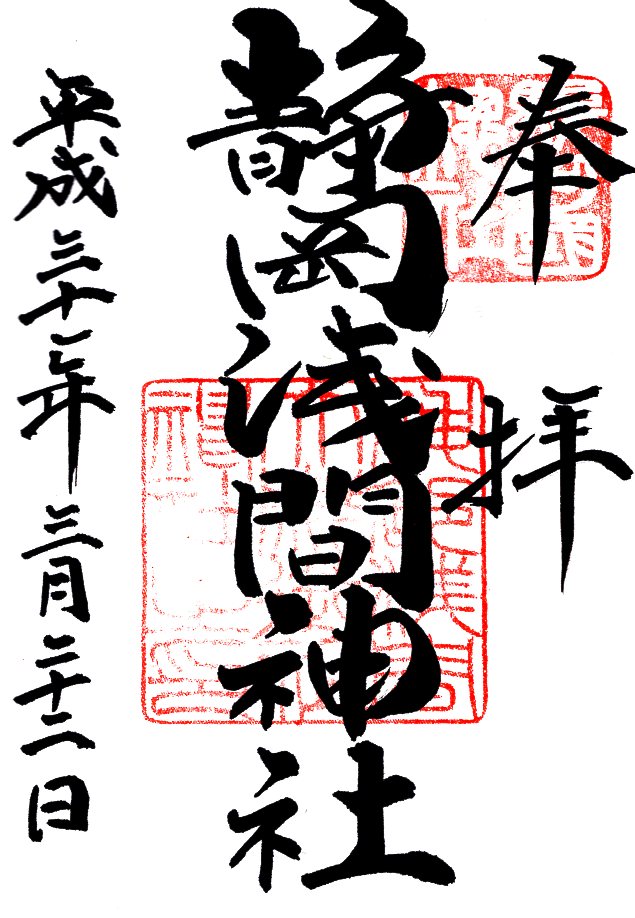 奉拝
静岡浅間神社
平成三十一年三月二十二日